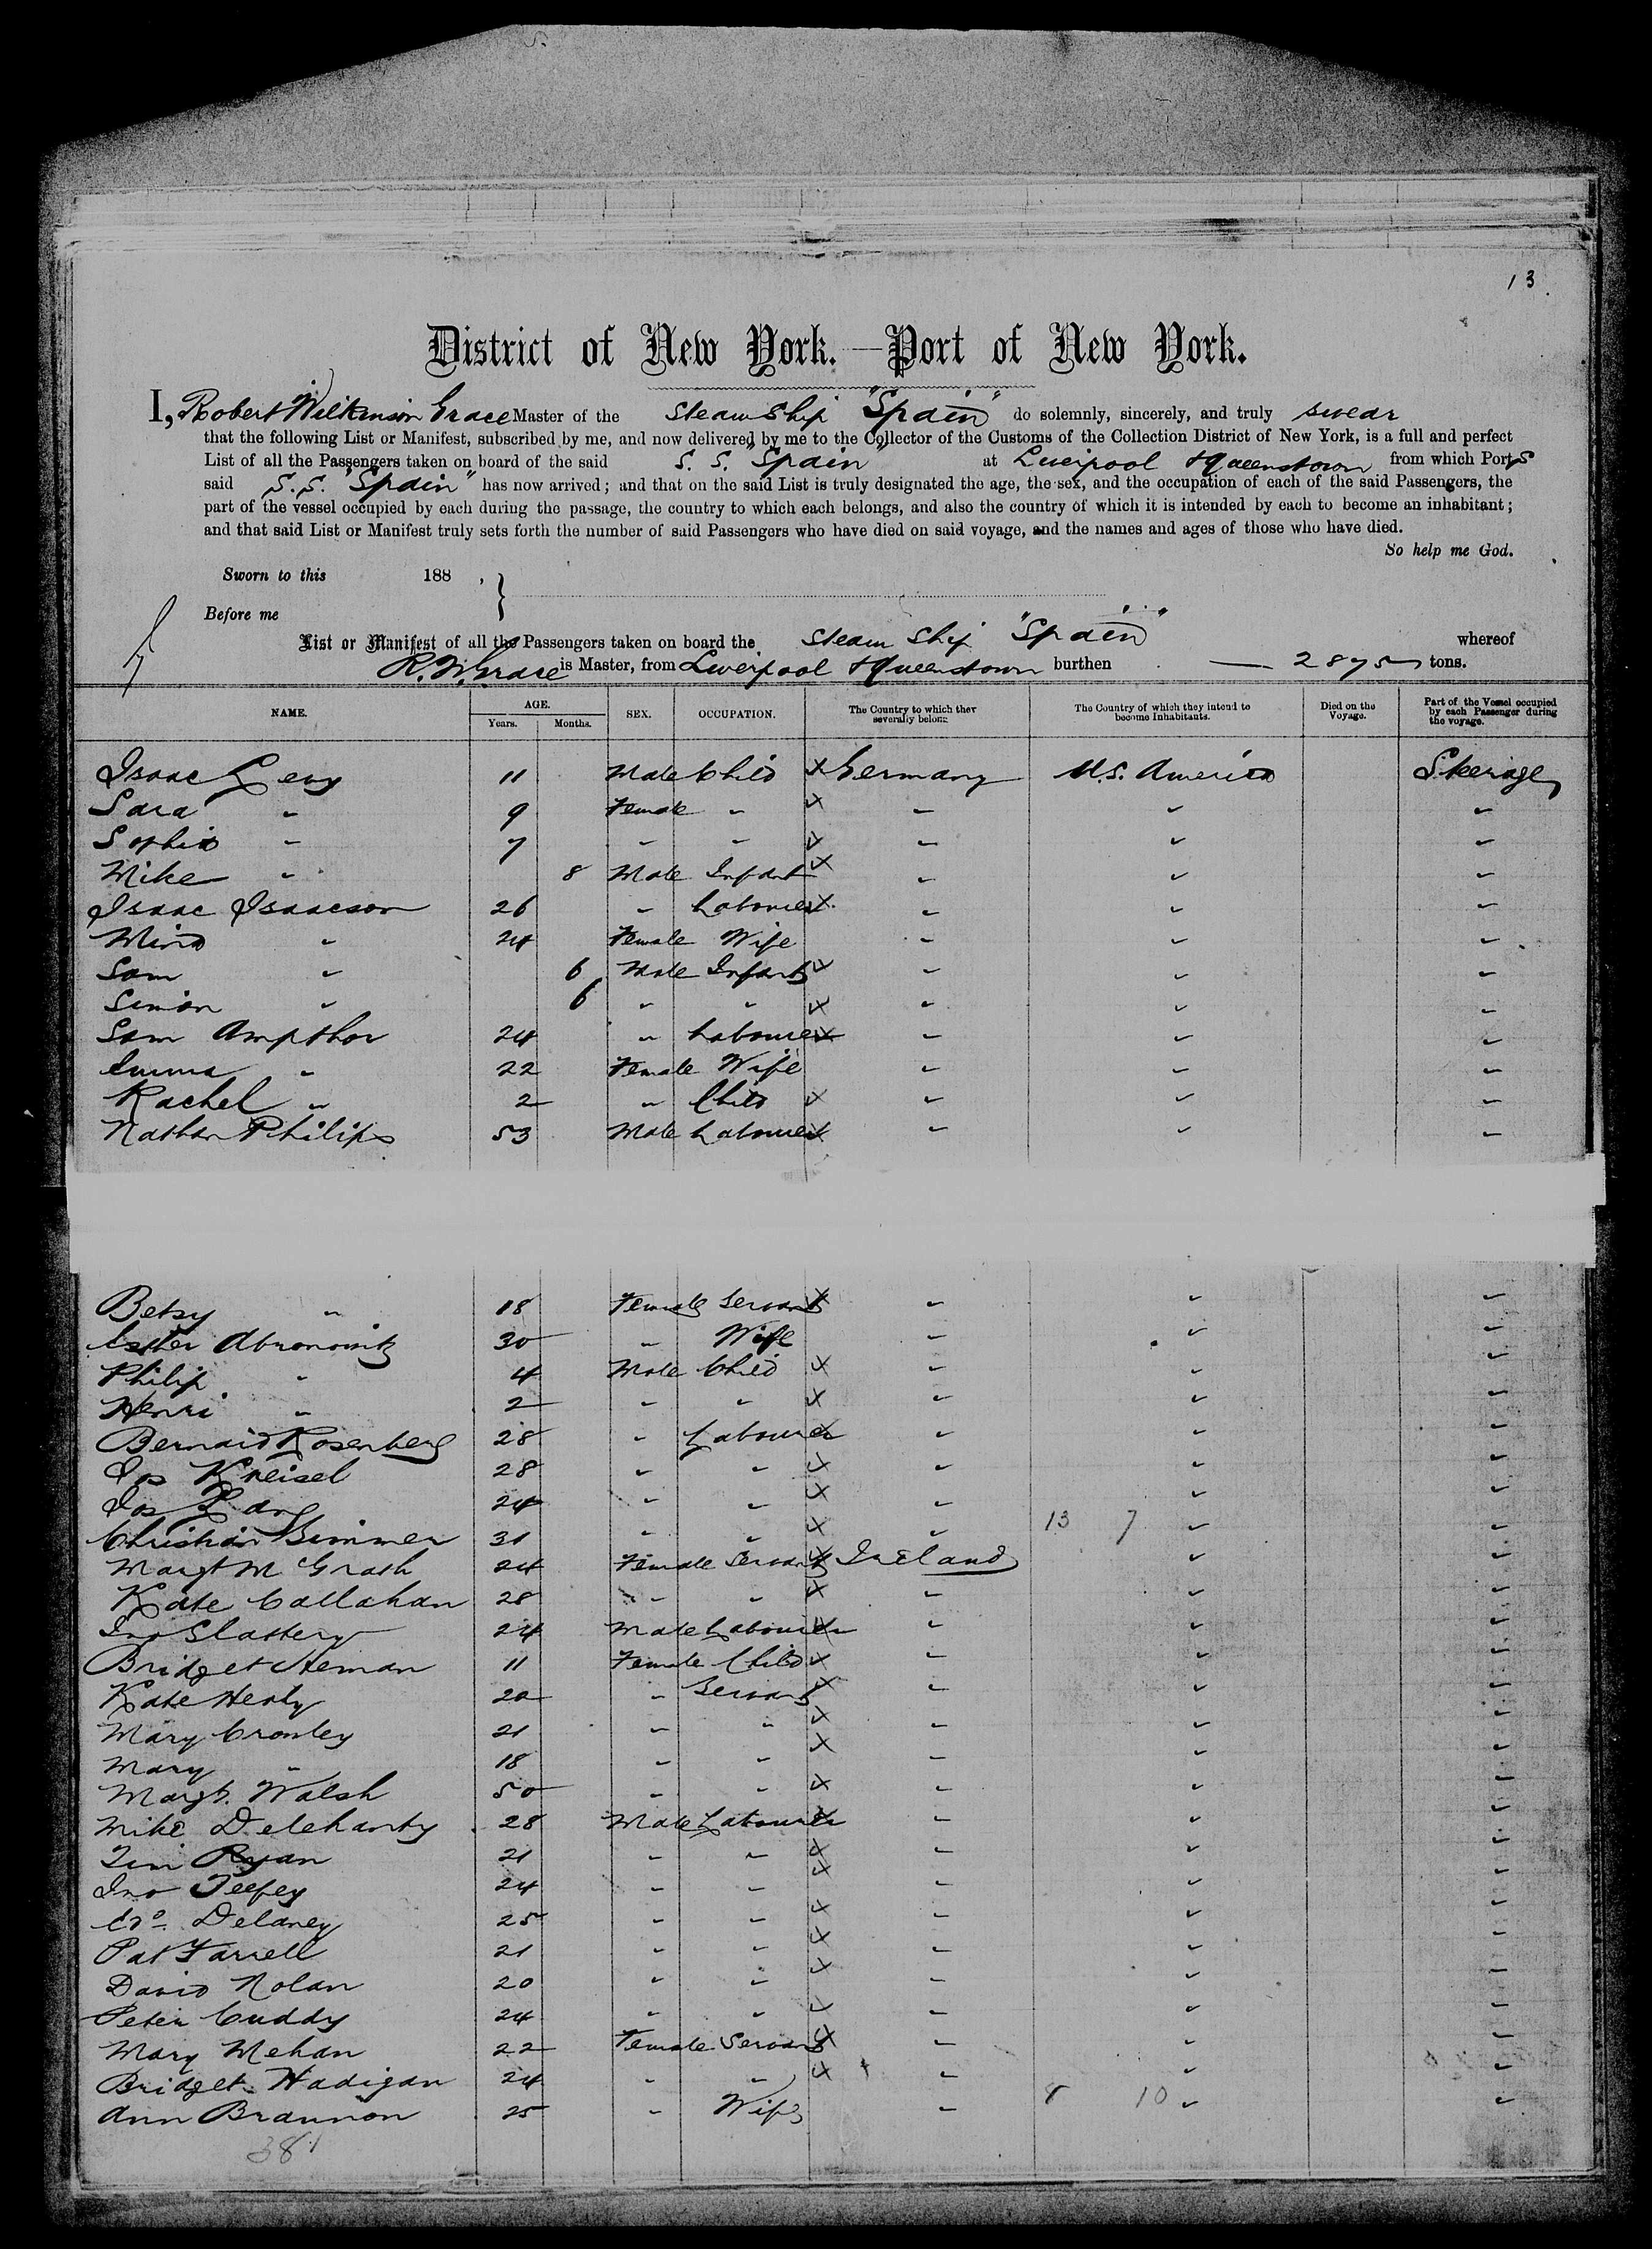 13
District of New York.—Port of New York.
I, Robert Wilkinson Grace Master of the Steam Ship "Spain" do solemnly, sincerely, and truly swear
that the following List or Manifest, subscribed by me, and now delivered by me to the Collector of the Customs of the Collection District of New York, is a full and perfect
List of all the Passengers taken on board of the said S. S. "Spain" at Liverpool & Queenstown from which Ports
said S. S. "Spain" has now arrived; and that on the said List is truly designated the age, the sex, and the occupation of each of the said Passengers, the
part of the vessel occupied by each during the passage, the country to which each belongs, and also the country of which it is intended by each to become an inhabitant;
and that said List or Manifest truly sets forth the number of said Passengers who have died on said voyage, and the names and ages of those who have died.
So help me God.
Sworn to this 188 ,
Before me
List or Manifest of all the Passengers taken on board the Steam Ship "Spain" whereof
R. W. Grace is Master, from Liverpool & Queenstown burthen — 2875 tons.
NAME. AGE. Years. Months. SEX. OCCUPATION. The Country to which they severally belong. The Country of which they intend to become Inhabitants. Died on the Voyage. Part of the Vessel occupied by each Passenger during the voyage.
Isaac Levy 11 Male Child X Germany U.S. America Steerage
Sara " 9 Female " X " " "
Sophia " 7 " " X " " "
Mike " 8 Male Infant X " " "
Isaac Isaacson 26 " Labourer X " " "
Mina " 24 Female Wife " " "
Sam " 6 Male Infant X " " "
Simon " 6 " " X " " "
Sam Ampthor 24 " Labourer X " " "
Emma " 22 Female Wife " " "
Rachel " 2 " Child X " " "
Nathan Philips 53 Male Labourer X " " "
Betsy " 18 Female Servant X " " "
Ester Abronowitz 30 " Wife " " "
Philip " 4 Male Child X " " "
Henri " 2 " " X " " "
Bernard Rosenberg 28 " Labourer X " " "
Jos Kneisel 28 " " X " " "
Jos Lang 24 " " X " " "
Christian Simmer 31 " " X " 13 7 " "
Margt McGrath 24 Female Servant X Ireland " "
Kate Callahan 28 " " X " " "
Jno Slattery 24 Male Labourer X " " "
Bridget Heman 11 Female Child X " " "
Kate Henly 20 " Servant X " " "
Mary Cronley 21 " " X " " "
Mary " 18 " " X " " "
Margt. Walsh 50 " " X " " "
Mike Delehanty 28 Male Labourer X " " "
Tim Ryan 21 " " X " " "
Jno Teefey 24 " " X " " "
Delaney 25 " " X " " "
Pat Farrell 21 " " X " " "
David Nolan 20 " " X " " "
Peter Cuddy 24 " " X " " "
Mary Mehan 22 Female Servant X " " "
Bridget Hadigan 24 " " X " " "
Ann Brannon 25 " Wife " 8 10 " "
381